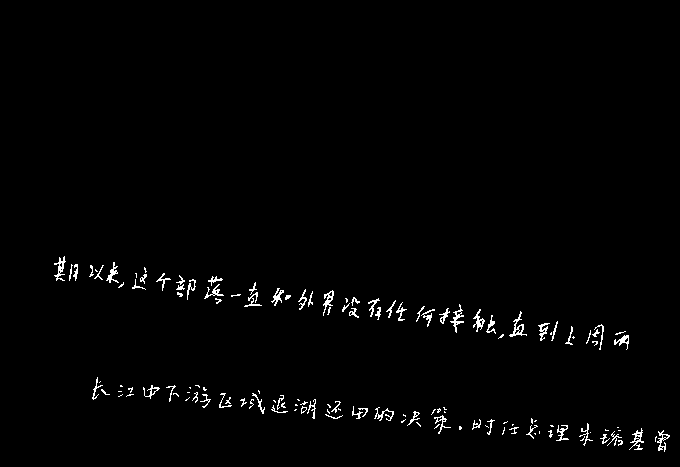 期以来,这个部落一直和外界没有任何接触,直到上周两
长江中下游区域退湖还田的决策.时任总理朱镕基曾